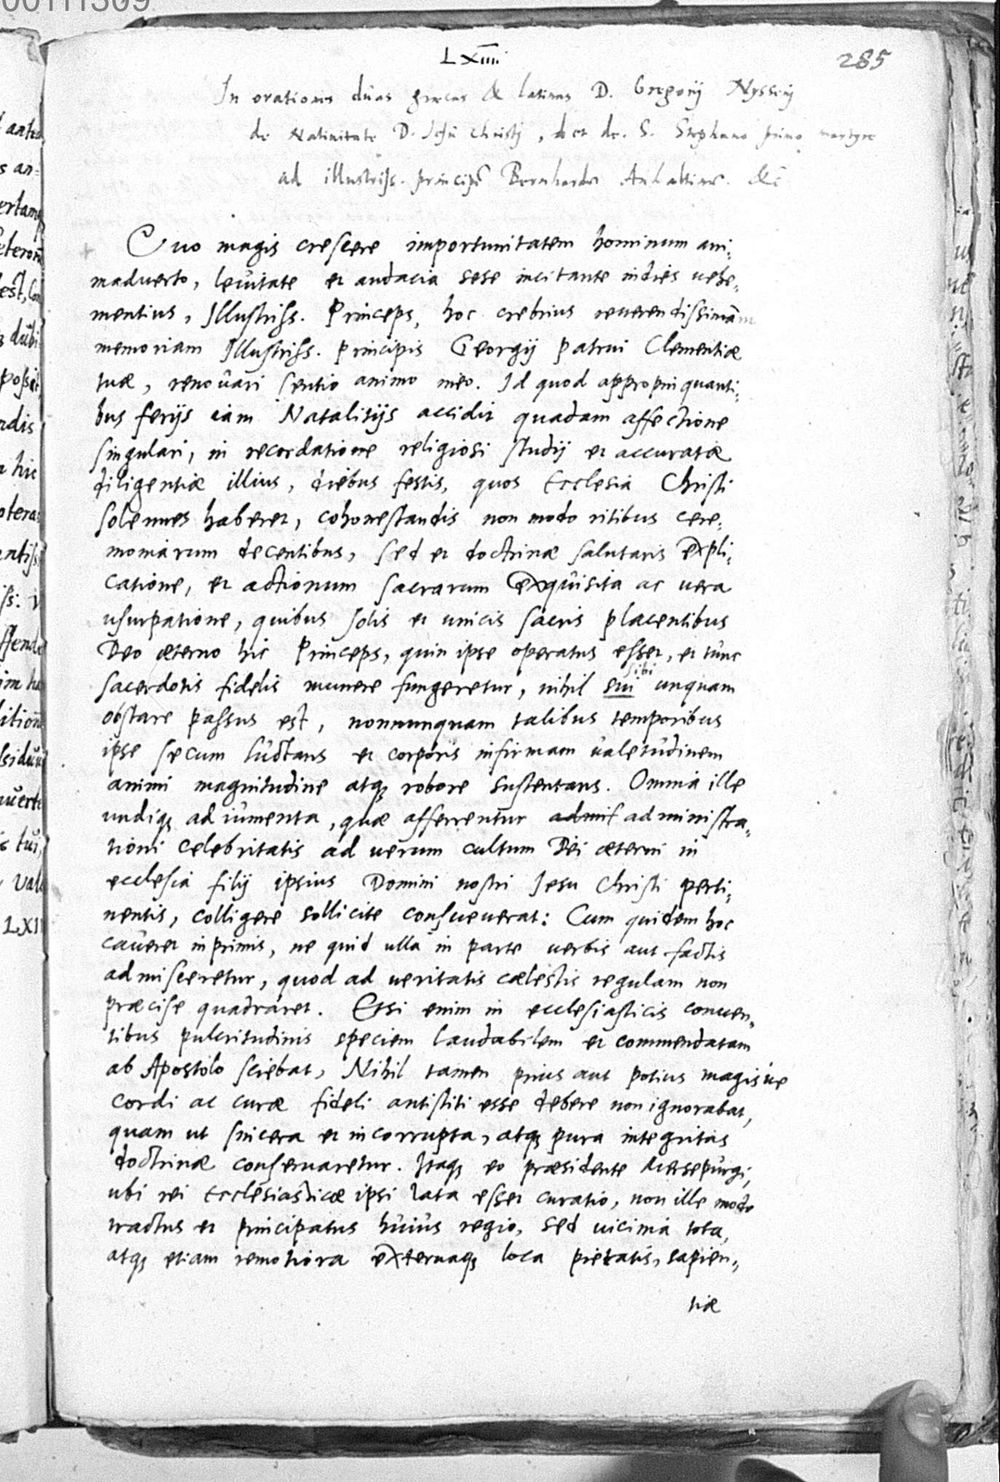 00111309
LXIIII
285
In orationes duas graecas & latinas D. Gregorij Nysseni
de Natiuitate D. Jesu Christj, et de S. Stephano primo martyre
ad illustriss. principem Bernhardum Anhaltinum. &c
Quo magis crescere importunitatem hominum ani-
maduerto, leuitate et audacia sese incitante indies uehe-
mentius, Illustriss. Princeps, hoc crebrius reuerendissimam
memoriam Illustriss. principis Georgij patrui Clementiæ
tuæ, renouari sentio animo meo. Id quod appropinquanti-
bus ferijs iam Natalitijs accidit quadam affectione
singulari, in recordatione religiosi studij et accuratæ
diligentiæ illius, diebus festis, quos Ecclesia Christi
solennes haberet, cohonestandis non modo ritibus cere-
moniarum decentibus, sed et doctrinæ salutaris expli-
catione, et actionum sacrarum exquisita ac uera
usurpatione, quibus solis et unicis sacris placentibus
Deo æterno hic Princeps, quin ipse operatus esset, et tunc
sacerdotis fidelis munere fungeretur, nihil sui sibi unquam
obstare passus est, nonnunquam talibus temporibus
ipse secum luctans et corporis infirmam ualetudinem
animi magnitudine atq; robore sustentans. Omnia ille
undiq; adiumenta, quæ afferrentur admi administra-
tioni celebritatis ad uerum cultum Dei æterni in
ecclesia filij ipsius Domini nostri Jesu Christi perti-
nentis, colligere sollicite consueuerat: Cum quidem hoc
caueret inprimis, ne quid ulla in parte uerbis aut factis
admisceretur, quod ad ueritatis cælestis regulam non
præcise quadraret. Etsi enim in ecclesiasticis conuen-
tibus pulcritudinis speciem laudabilem et commendatam
ab Apostolo sciebat, Nihil tamen prius aut potius magisue
cordi ac curæ fideli antistiti esse debere non ignorabat,
quam ut sincera et incorrupta, atq; pura integritas
doctrinæ conseruaretur. Itaq; eo præsidente Mersepurgi,
ubi rei Ecclesiasticæ ipsi lata esset curatio, non ille modo
tractus et principatus huius regio, sed uicinia tota,
atq; etiam remotiora externaq; loca pietatis, sapien-
tiæ